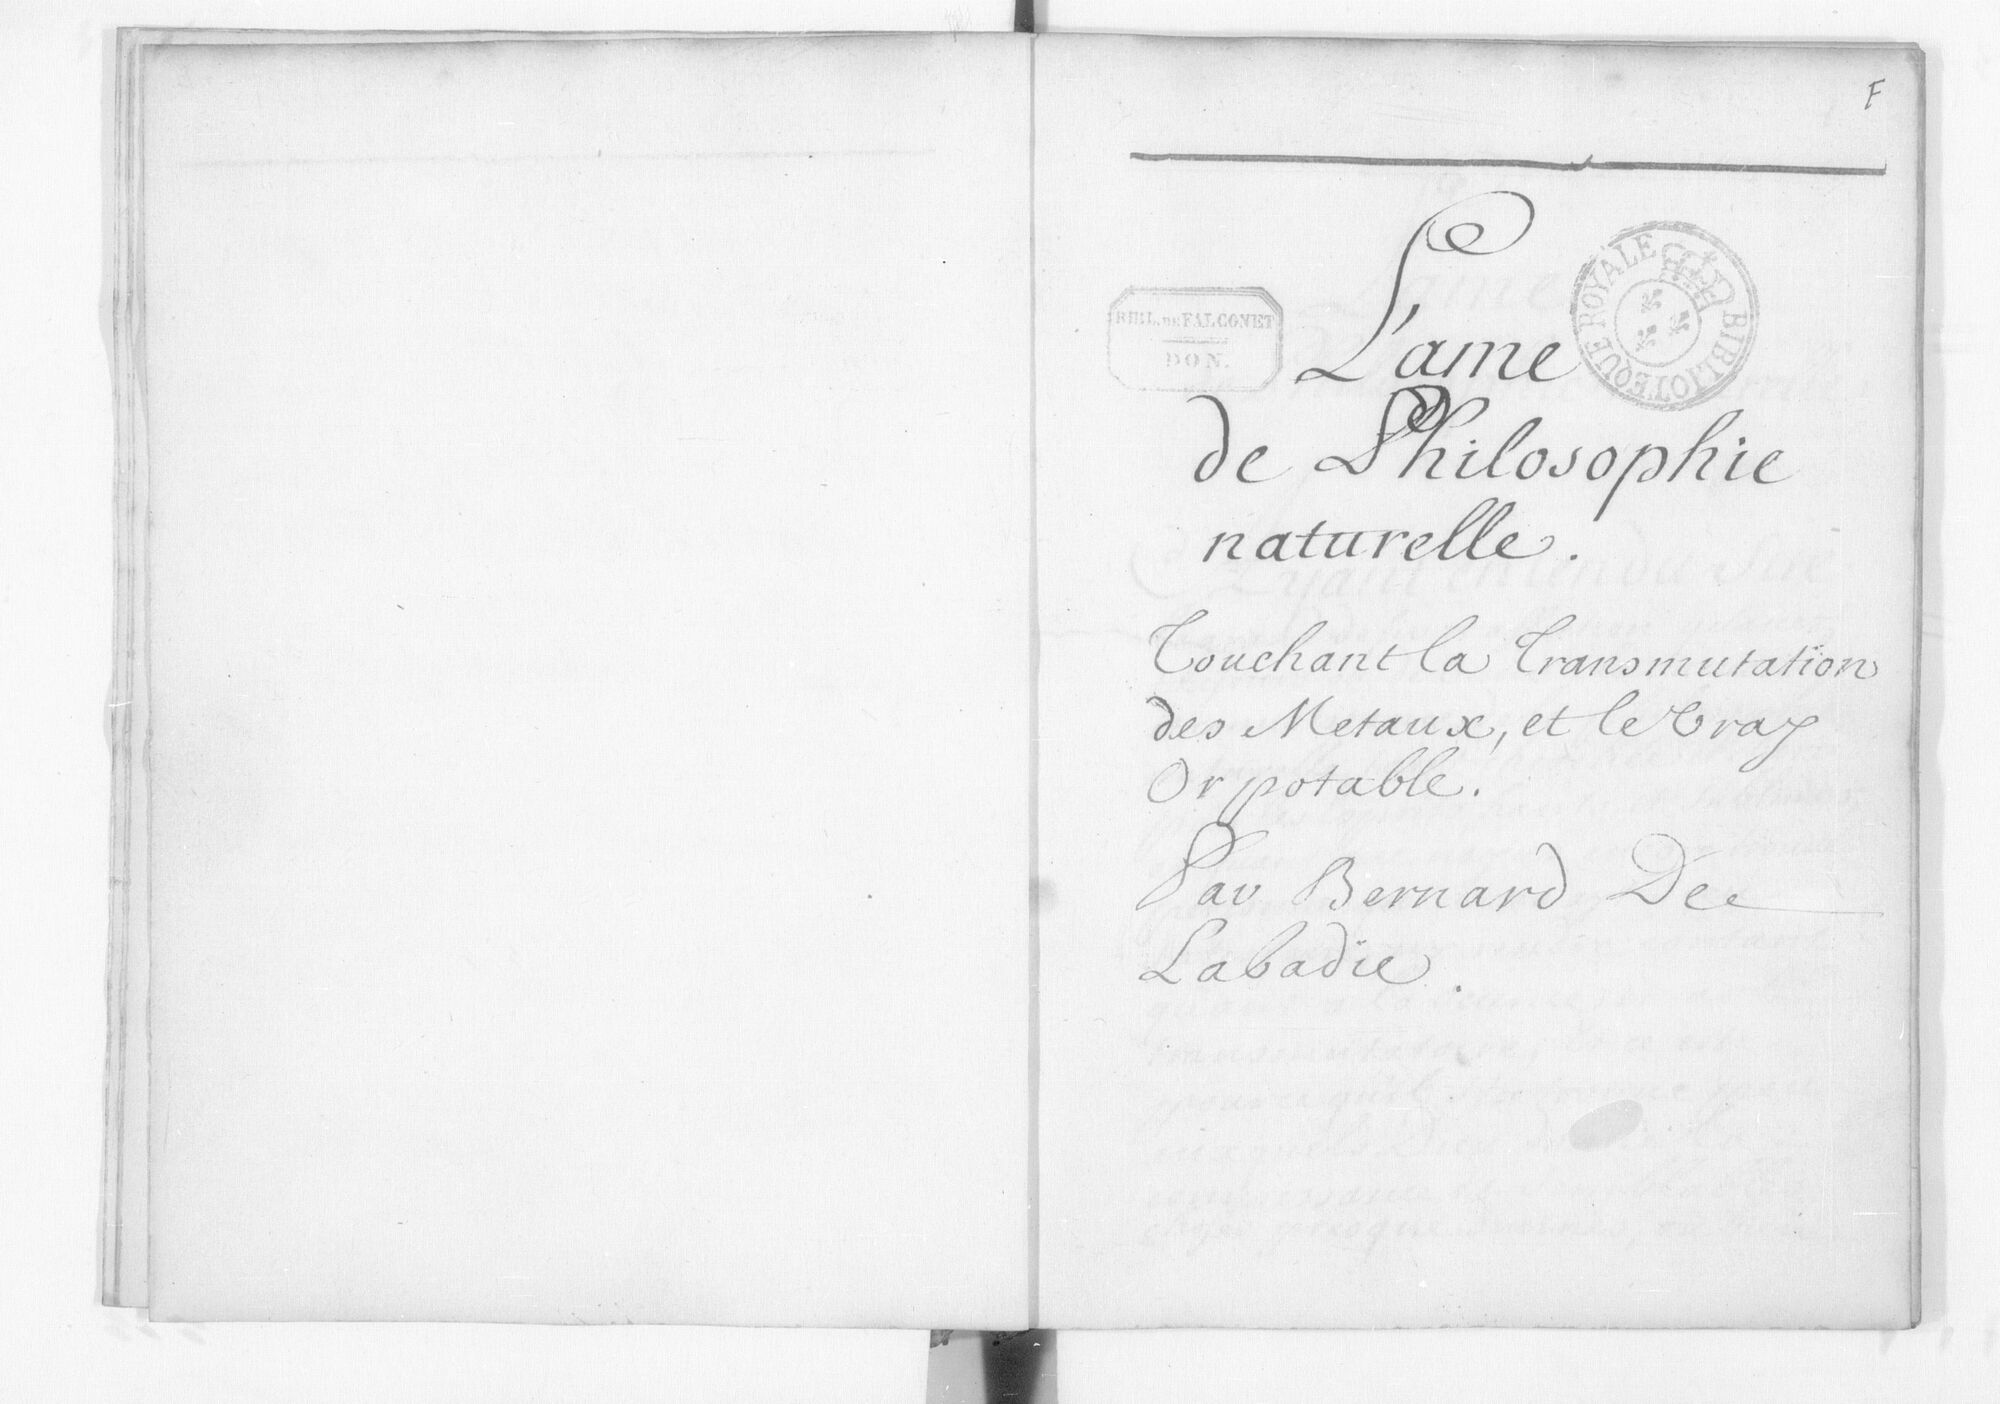 F
L'ame
de Philosophie
naturelle.
BIBL. DE FALCONET
DON.
BIBLIOTEQUE ROYALE
Touchant la Transmutation
des Metaux, et le Vray
Or potable.
Par Bernard De
Labadie.